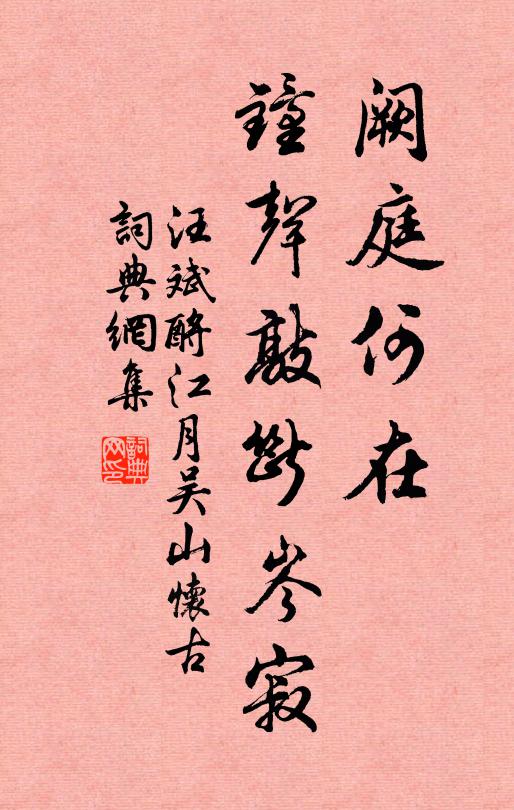 闕庭何在
鐘聲敲斷岑寂
汪斌酹江月吳山懷古
詞典網集
詞典网印